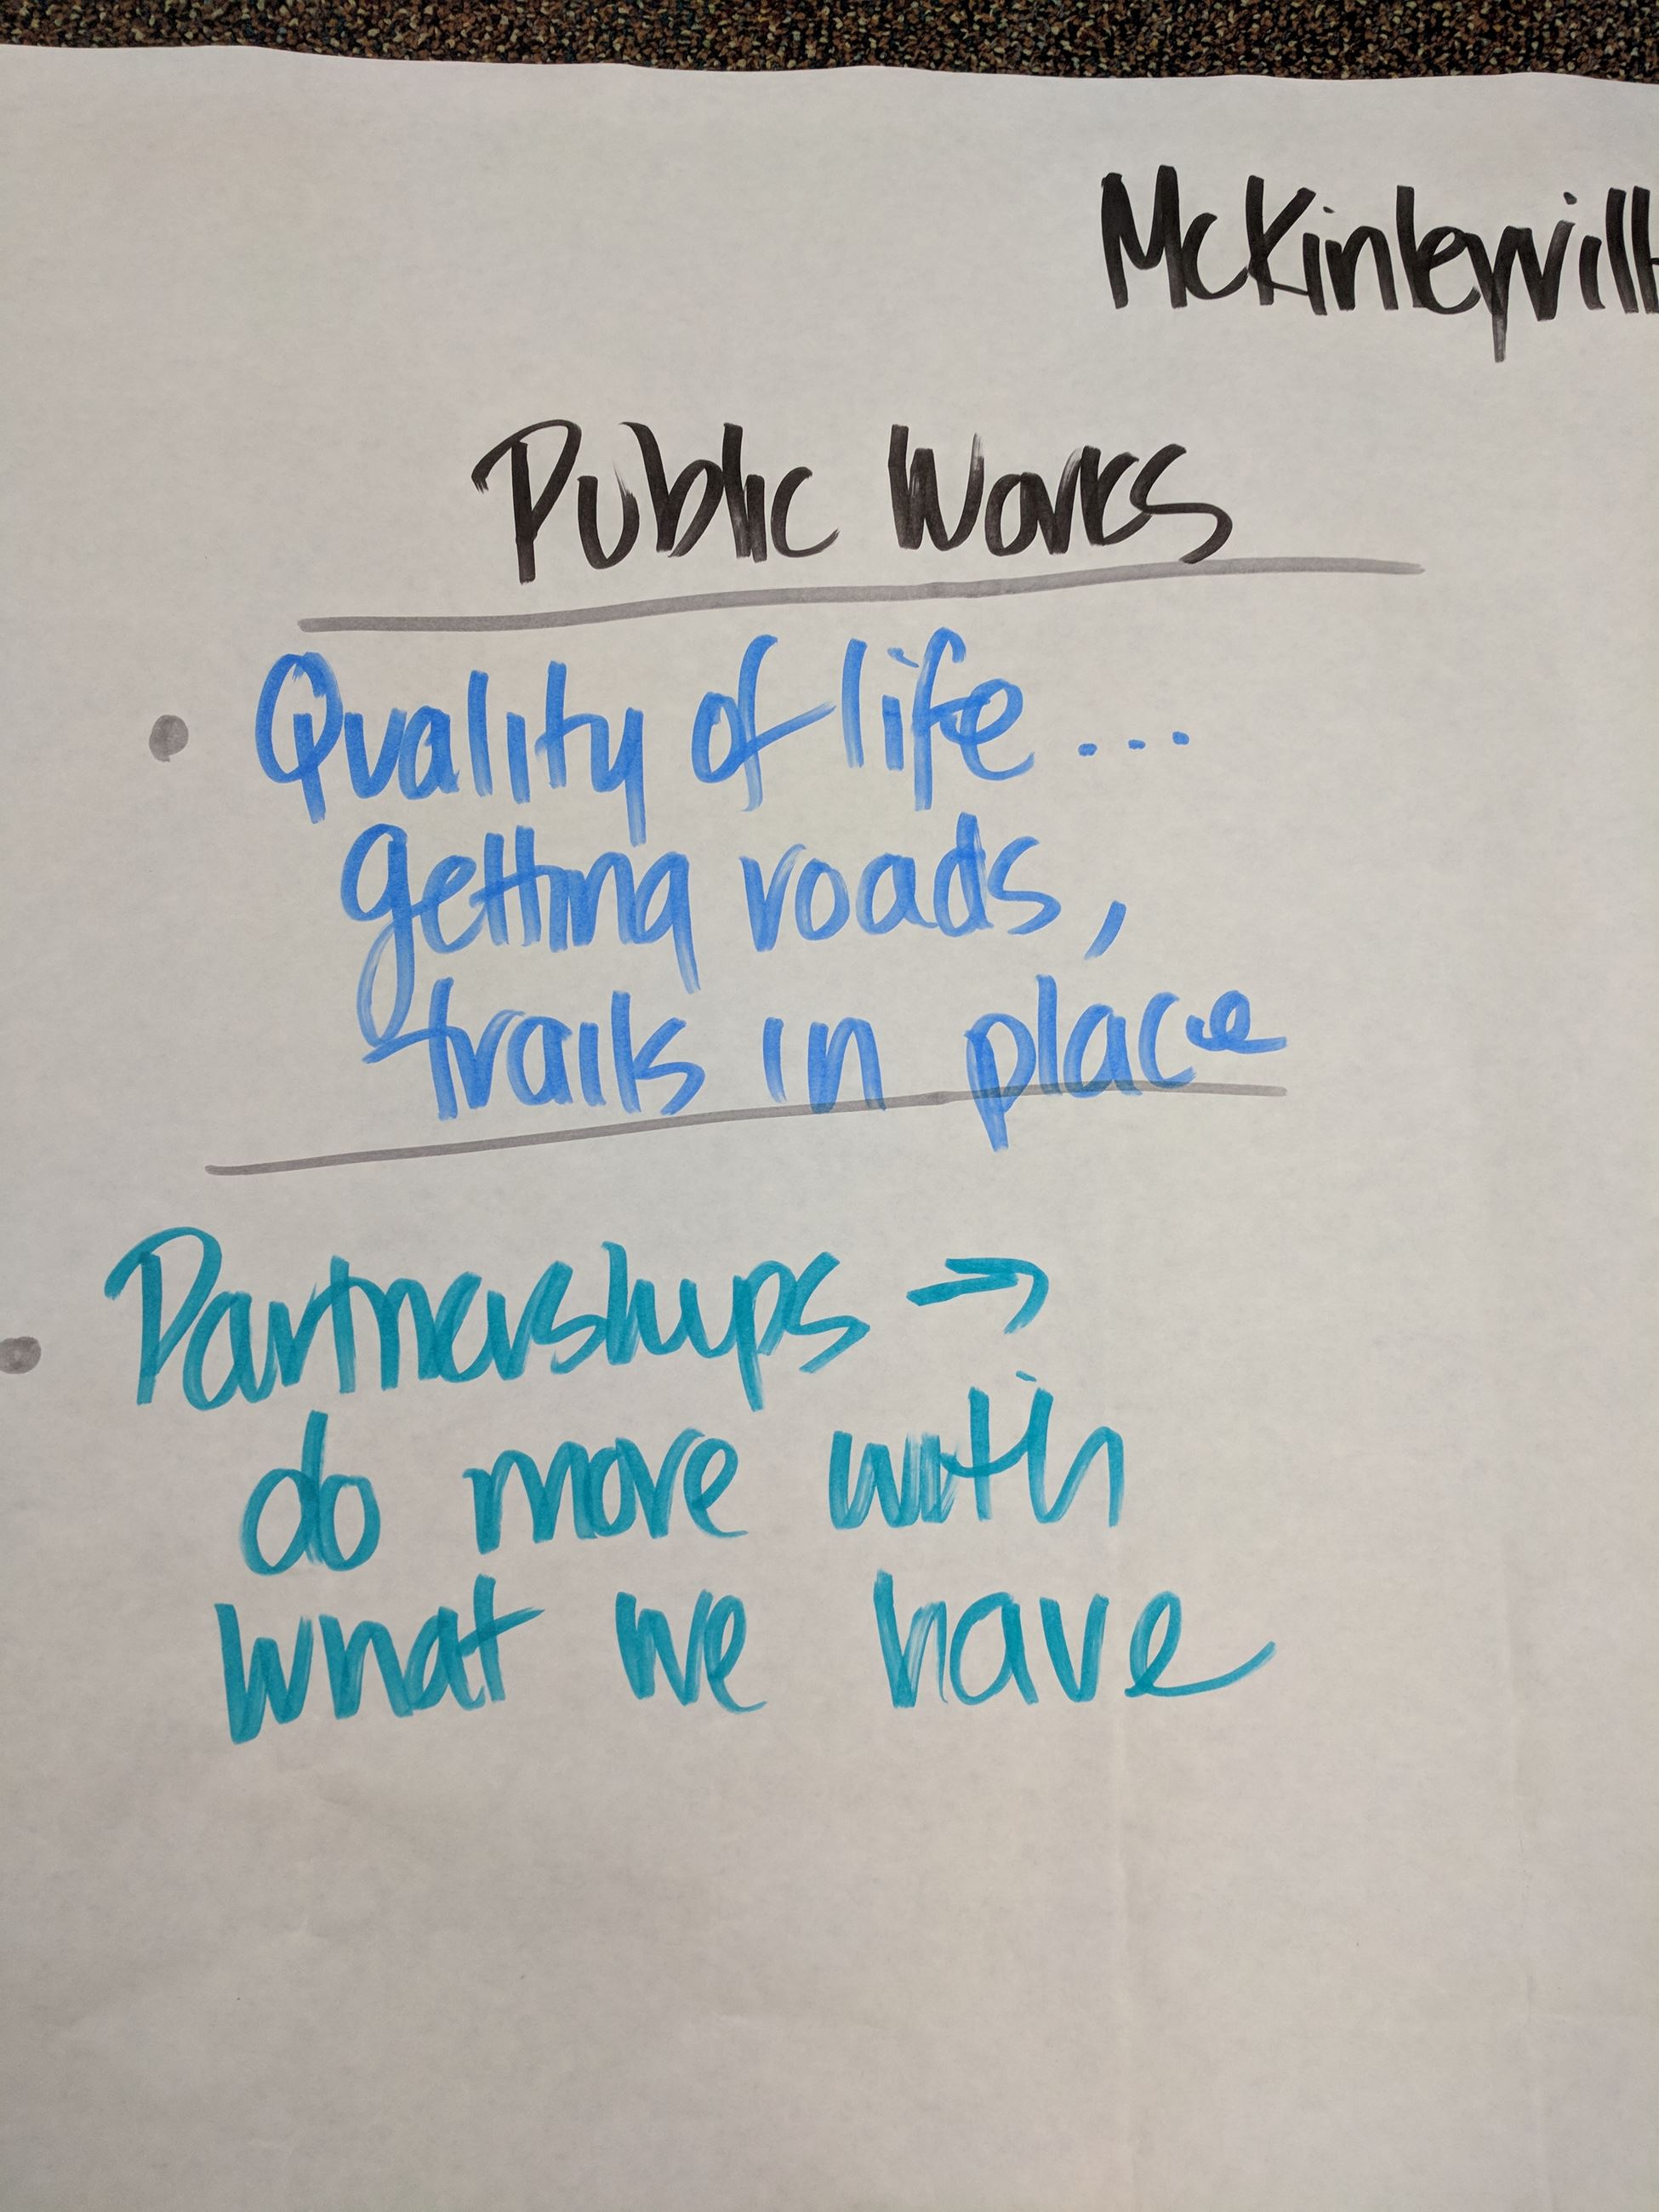 McKinleyvill
Public Works
• Quality of life...
getting roads,
trails in place
• Partnerships →
do more with
what we have